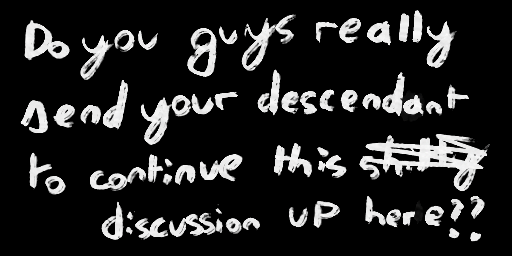 Do you guys really
send your descendant
to continue this
discussion up here??